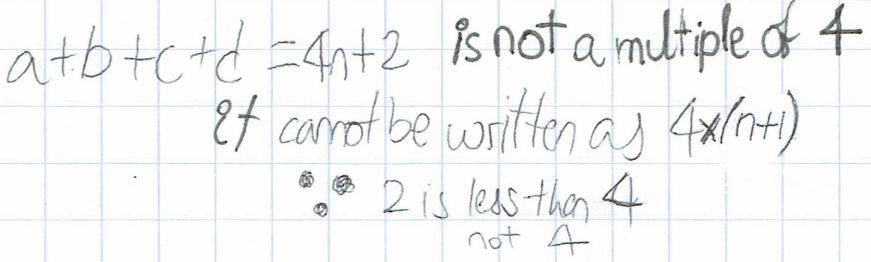 a+b+c+d=4n+2 is not a multiple of 4
it cannot be written as 4×(n+1)
∵ 2 is less than 4
not 4